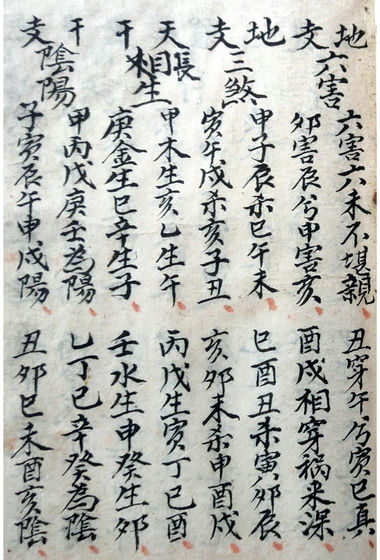 地支六害
六害六未不堪親 丑穿午兮寅巳真
卯害辰兮申害亥 酉戌相穿禍来深
地支三煞
申子辰杀巳午未 巳酉丑杀寅卯辰
寅午戌杀亥子丑 亥卯未杀申酉戌
天干長相生
甲木生亥乙生午 丙戊生寅丁巳酉
庚金生巳辛生子 壬水生申癸生卯
干支陰陽
甲丙戊庚壬為陽 乙丁巳辛癸為陰
子寅辰午申戌陽 丑卯巳未酉亥陰